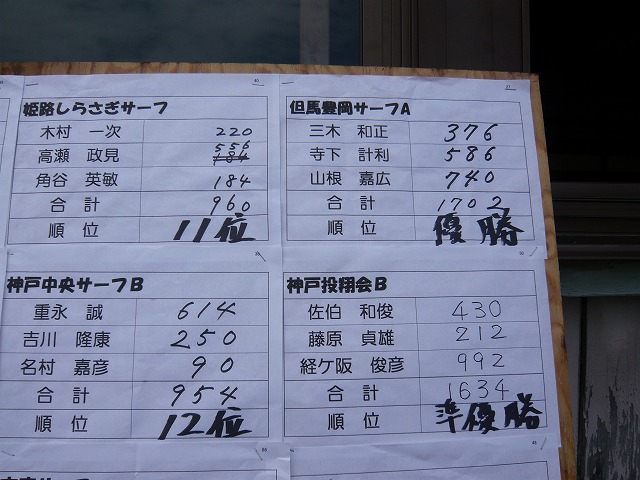 姫路しらさぎサーフ
木村 一次 220
高瀬 政見 556
184
角谷 英敏 184
合計 960
順位 11位
但馬豊岡サーフA
三木 和正 376
寺下 計利 586
山根 嘉広 740
合計 1702
順位 優勝
神戸中央サーフB
重永 誠 614
吉川 隆康 250
名村 嘉彦 90
合計 954
順位 12位
神戸投翔会B
佐伯 和俊 430
藤原 貞雄 212
経ケ阪 俊彦 992
合計 1634
順位 準優勝